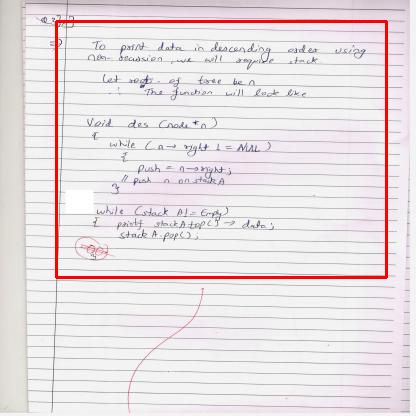 To print data in descending order using
non-recursion, we will require stack
Let root of tree be n
∴ The function will look like
Void des (node *n)
{
while (n → right != NULL)
{
push = n → right;
// push n on stack A
}
while (stack A != Empty)
{ printf stackA.top() → data;
stack A.pop();